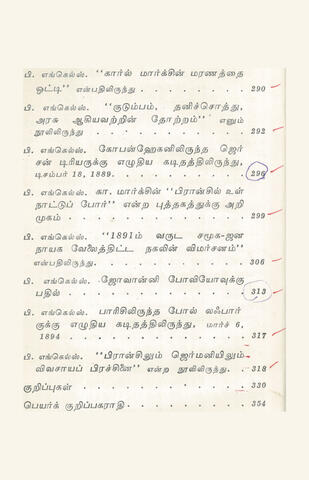 பி. எங்கெல்ஸ். "கார்ல் மார்க்சின் மரணத்தை
ஒட்டி" என்பதிலிருந்து . . . . . . . . 290
பி. எங்கெல்ஸ். "குடும்பம், தனிச்சொத்து,
அரசு ஆகியவற்றின் தோற்றம்" எனும்
நூலிலிருந்து . . . . . . . . . . . 292
பி. எங்கெல்ஸ். கோபன்ஹேகனிலிருந்த ஜெர்
சன் டிரியருக்கு எழுதிய கடிதத்திலிருந்து,
டிசம்பர் 18, 1889. . . . . . . . . . 296
பி. எங்கெல்ஸ். கா. மார்க்சின் "பிரான்சில் உள்
நாட்டுப் போர்" என்ற புத்தகத்துக்கு அறி
முகம் . . . . . . . . . . . . . 299
பி. எங்கெல்ஸ். "1891ம் வருட சமூக-ஜன
நாயக வேலைத்திட்ட நகலின் விமர்சனம்"
என்பதிலிருந்து. . . . . . . . . . . 306
பி. எங்கெல்ஸ். ஜோவான்னி போவியோவுக்கு
பதில் . . . . . . . . . . . . . 313
பி. எங்கெல்ஸ். பாரிசிலிருந்த போல் லஃபார்
குக்கு எழுதிய கடிதத்திலிருந்து, மார்ச் 6,
1894 . . . . . . . . . . . . . 317
பி. எங்கெல்ஸ். "பிரான்சிலும் ஜெர்மனியிலும்
விவசாயப் பிரச்சினை" என்ற நூலிலிருந்து. . 318
குறிப்புகள் . . . . . . . . . . . . 330
பெயர்க் குறிப்பகராதி . . . . . . . . . 354